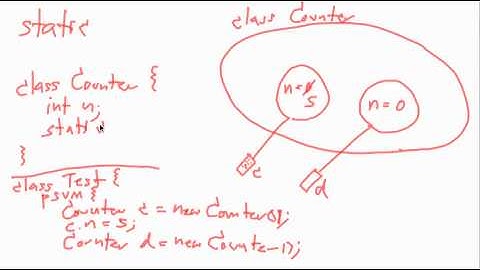 static
class Counter {
int n;
stati
}
class Test {
psvm {
Counter c = new Counter();
c.n = 5;
Counter d = new Counter();
class Counter
n = 0
5
n = 0
c
d